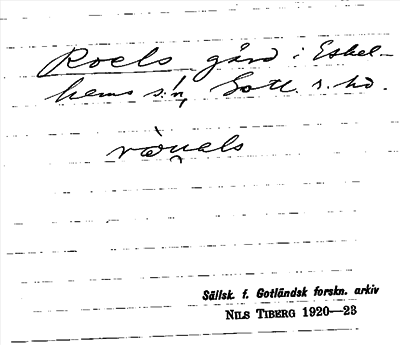 Roels gård i Eskel-
hems s:n, Gotl. s. hd.
Sällsk. f. Gotländsk forskn. arkiv
NILS TIBERG 1920—23